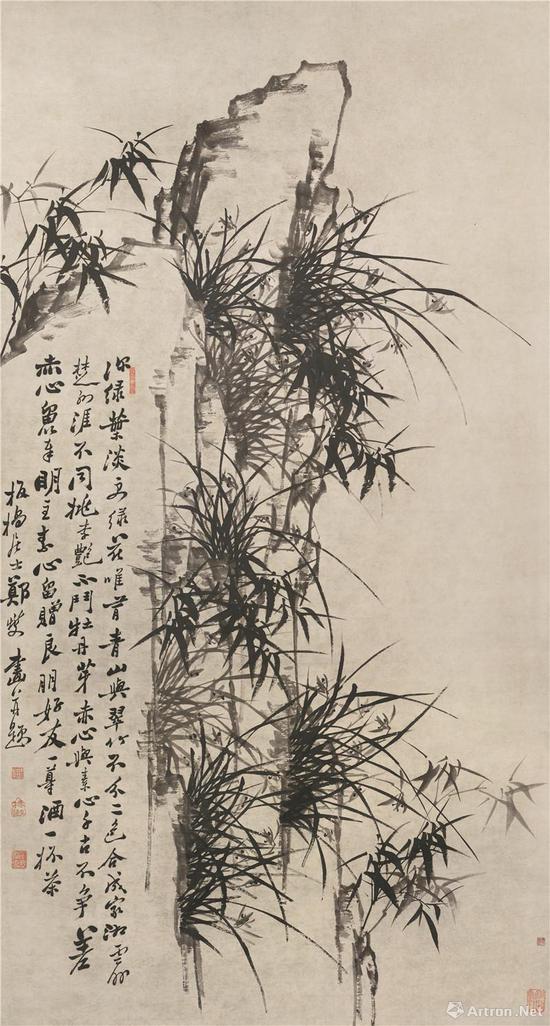 深綠葉淡綠花唯有青山與翠竹不分二色合成家湘雲外
楚水涯不同桃李艷不鬥牡丹芽赤心與素心千古不爭差
赤心留奉明主素心留贈良朋好友一尊酒一杯茶
板橋居士鄭燮畫并題
Artron.Net